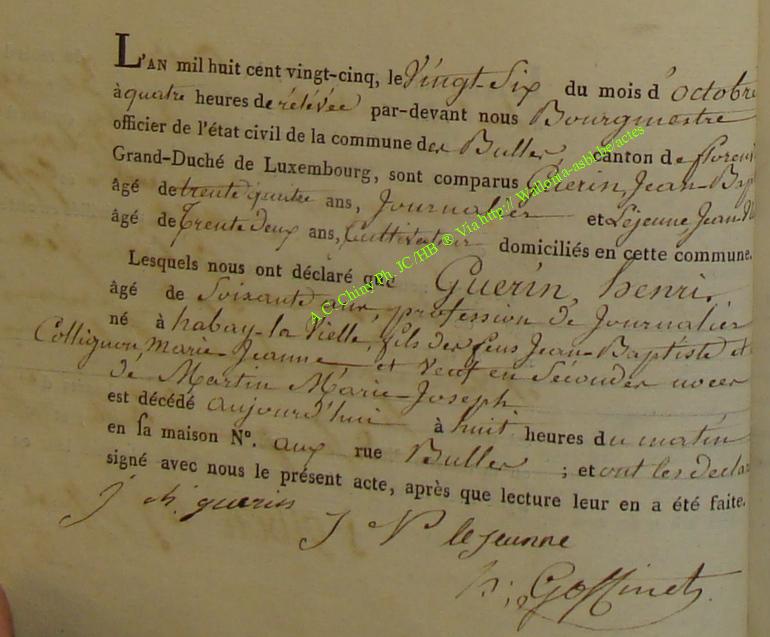 L'AN mil huit cent vingt-cinq, le Vingt-Six du mois d'octobre
à quatre heures de rélévée par-devant nous Bourgmestre
officier de l'état civil de la commune des Bulles canton de floren
Grand-Duché de Luxembourg, sont comparus Guerin, Jean-Bap
âgé de trente quatre ans, Journalier et Lejeune, Jean-N
âgé de Trente Deux ans, Cultivateur domiciliés en cette commune.
Lesquels nous ont déclaré que Guerin, henri,
âgé de Soixante ans, profession de Journalier
né à habay-la Vielle, fils des feus Jean-Baptiste et
Collignon, Marie-Jeanne et Veuf en Secondes noces
de Martin Marie-Joseph
est décédé aujourd'hui à huit heures du matin
en sa maison N°. aux rue Bulles ; et ont les declar
signé avec nous le présent acte, après que lecture leur en a été faite.
J. guerin
J N lejeunne
h; Goffinet
A.C. Chiny Ph. JC/HB ® Via http:// Wallonia-asbl.be/actes